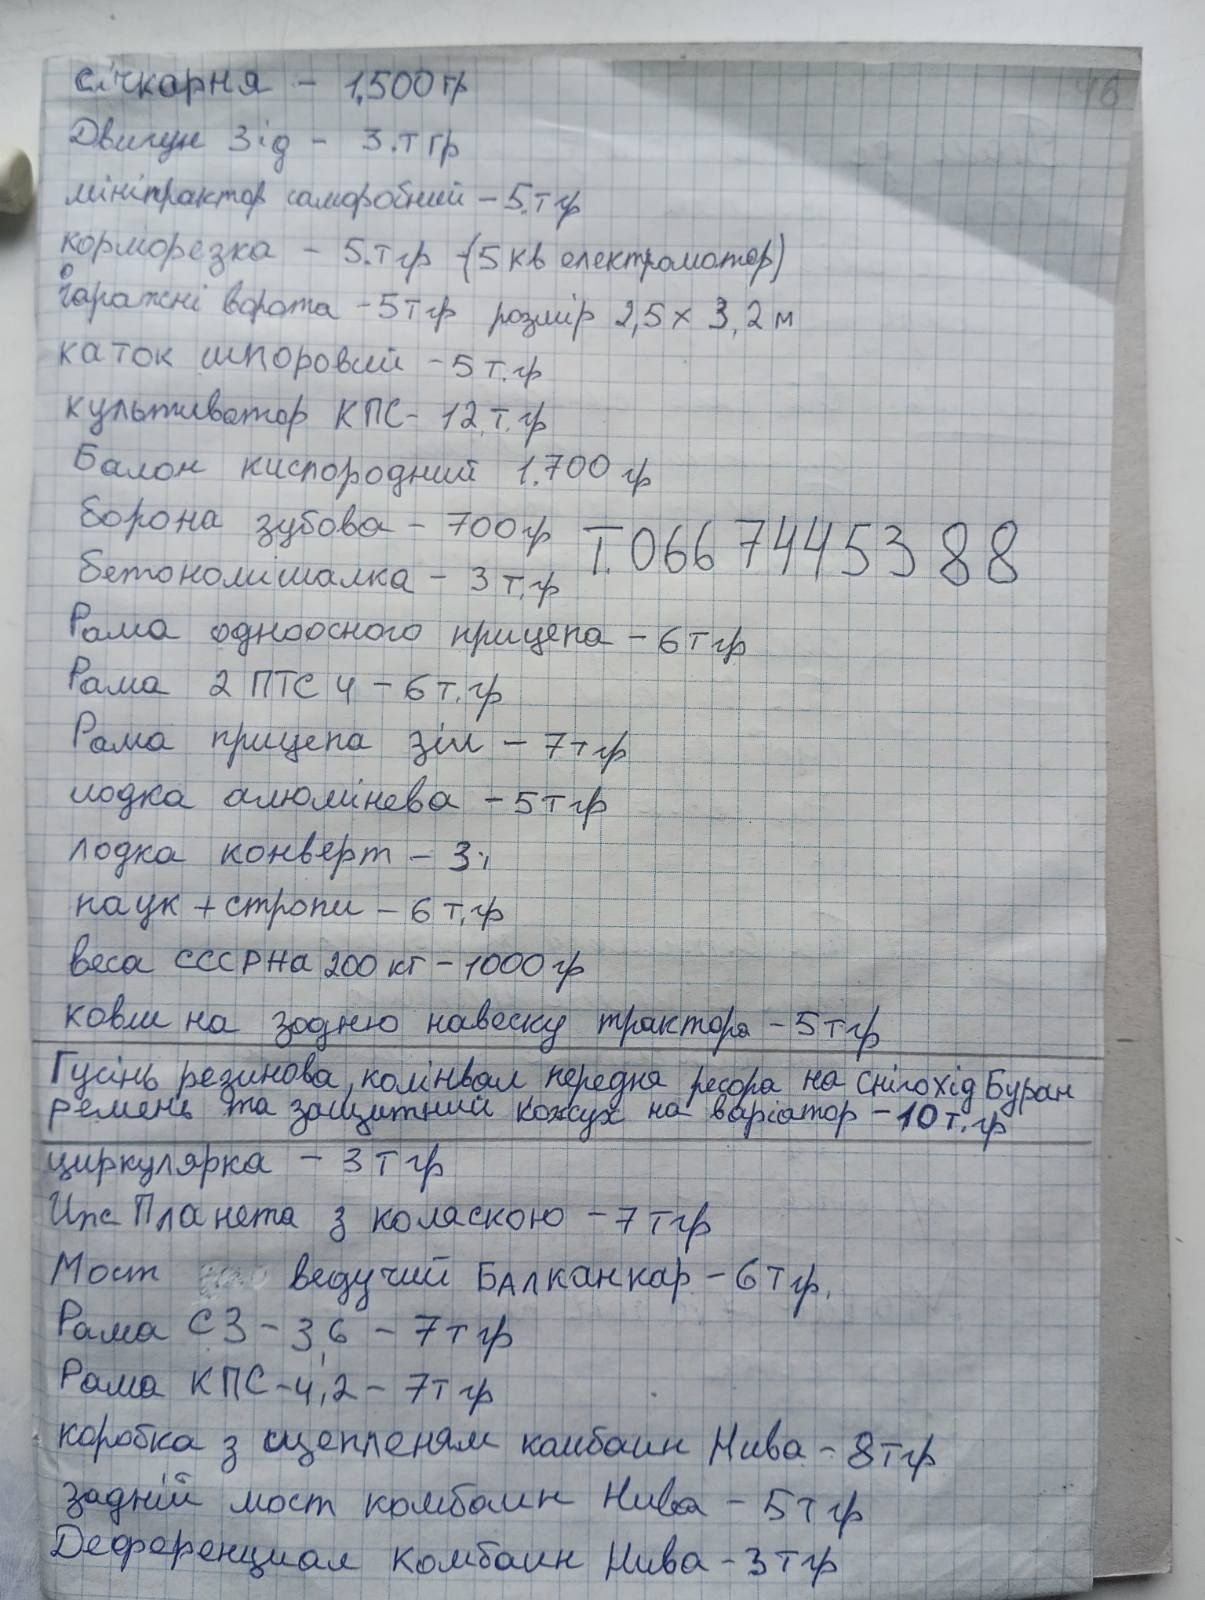 січкарня - 1,500 гр
Двигун Зід - 3.т гр
мінітрактор саморобний - 5.т гр
корморезка - 5.т гр -(5 кв електромотор)
гаражні ворота - 5 т гр розмір 2,5 х 3,2 м
каток шпоровий - 5 т. гр
культиватор КПС - 12 т. гр
Балон киспородний 1.700 гр
борона зубова - 700 гр
Т. 066 7445388
бетономішалка - 3 т. гр
Рама одноосного прицепа - 6 т гр
Рама 2 ПТС 4 - 6 т. гр
Рама прицепа зіл - 7 т гр
лодка алюмінева - 5 т гр
лодка конверт - 3т
паук + стропи - 6 т. гр
веса СССР на 200 кг - 1000 гр
ковш на задню навеску трактора - 5 т гр
Гусінь резинова, колінвал передня ресора на снігохід Буран
ремень та защитний кожух на варіатор - 10 т. гр
циркулярка - 3 т гр
Иж Планета з коляскою - 7 т гр
Мост ведучий Балканкар - 6 т гр.
Рама СЗ - 3,6 - 7 т гр
Рама КПС - 4,2 - 7 т гр
коробка з сцепленям комбаин Нива - 8 т гр
задній мост комбаин Нива - 5 т гр
Деференциал комбаин Нива - 3 т гр